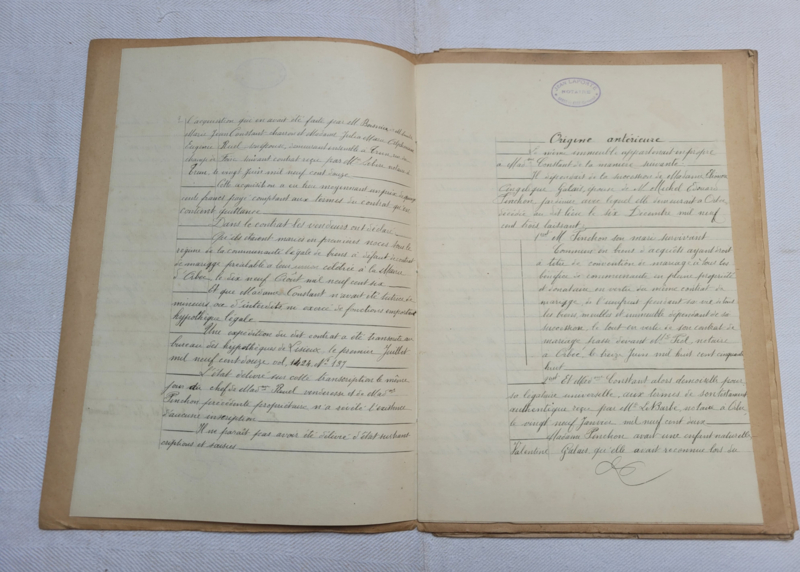 L'acquisition qui en avait été faite par M.
Marie Jean Constant charron et Madame Julia Marie Alphonsine
Eugénie Ruel son épouse, demeurant ensemble à
suivant contrat reçu par Me notaire à
le vingt juin mil neuf cent douze
Cette acquisition a eu lieu moyennant un prix de
cent francs payé comptant aux termes du contrat qui en
contient quittance.
Dans le contrat les vendeurs ont déclaré
Qu'ils étaient mariés en premières noces sous le
régime de la communauté légale de biens à défaut de contrat
de mariage préalable à leur union célébrée à la Mairie
d'Orbec, le dix neuf Août mil neuf cent six
Et que Madame Constant n'avait été tutrice de
mineurs ou d'interdits ni exercé de fonctions emportant
hypothèque légale.
Une expédition du dit contrat a été transcrite au
bureau des hypothèques de Lisieux, le premier Juillet
mil neuf cent douze vol. 1424 No 197
L'état délivré sur cette transcription le même
jour du chef de Mme venderesse et de Made
Penchon précédente propriétaire n'a révélé l'existence
d'aucune inscription
Il ne paraît pas avoir été délivré d'état suivant
et saisies
Origine antérieure
Le même immeuble appartenait en propre
à Made Constant de la manière suivante
Il dépendait de la succession de Madame
Angélique Galais, épouse de M. Michel
Penchon journalier avec lequel elle demeurait à Orbec
décédée au dit lieu le six Décembre mil neuf
cent trois laissant:
1ent M. Penchon son mari survivant
Commun en biens à acquêts ayant droit
à titre de convention de mariage à tous les
bénéfices de communauté, en pleine propriété
et donataire en vertu du même contrat de
mariage, de l'usufruit pendant sa vie de tous
les biens meubles et immeubles dépendant de sa
succession, le tout en vertu de son contrat de
mariage passé devant Me notaire
à Orbec, le Juin mil huit cent cinquante
huit.
2ent Et Made Constant alors demoiselle pour
sa légataire universelle, aux termes de son testament
authentique reçu par Me notaire à Orbec
le vingt neuf Janvier mil neuf cent deux
Madame Penchon avait une enfant naturelle
Valentine Galais qu'elle avait reconnue lors de